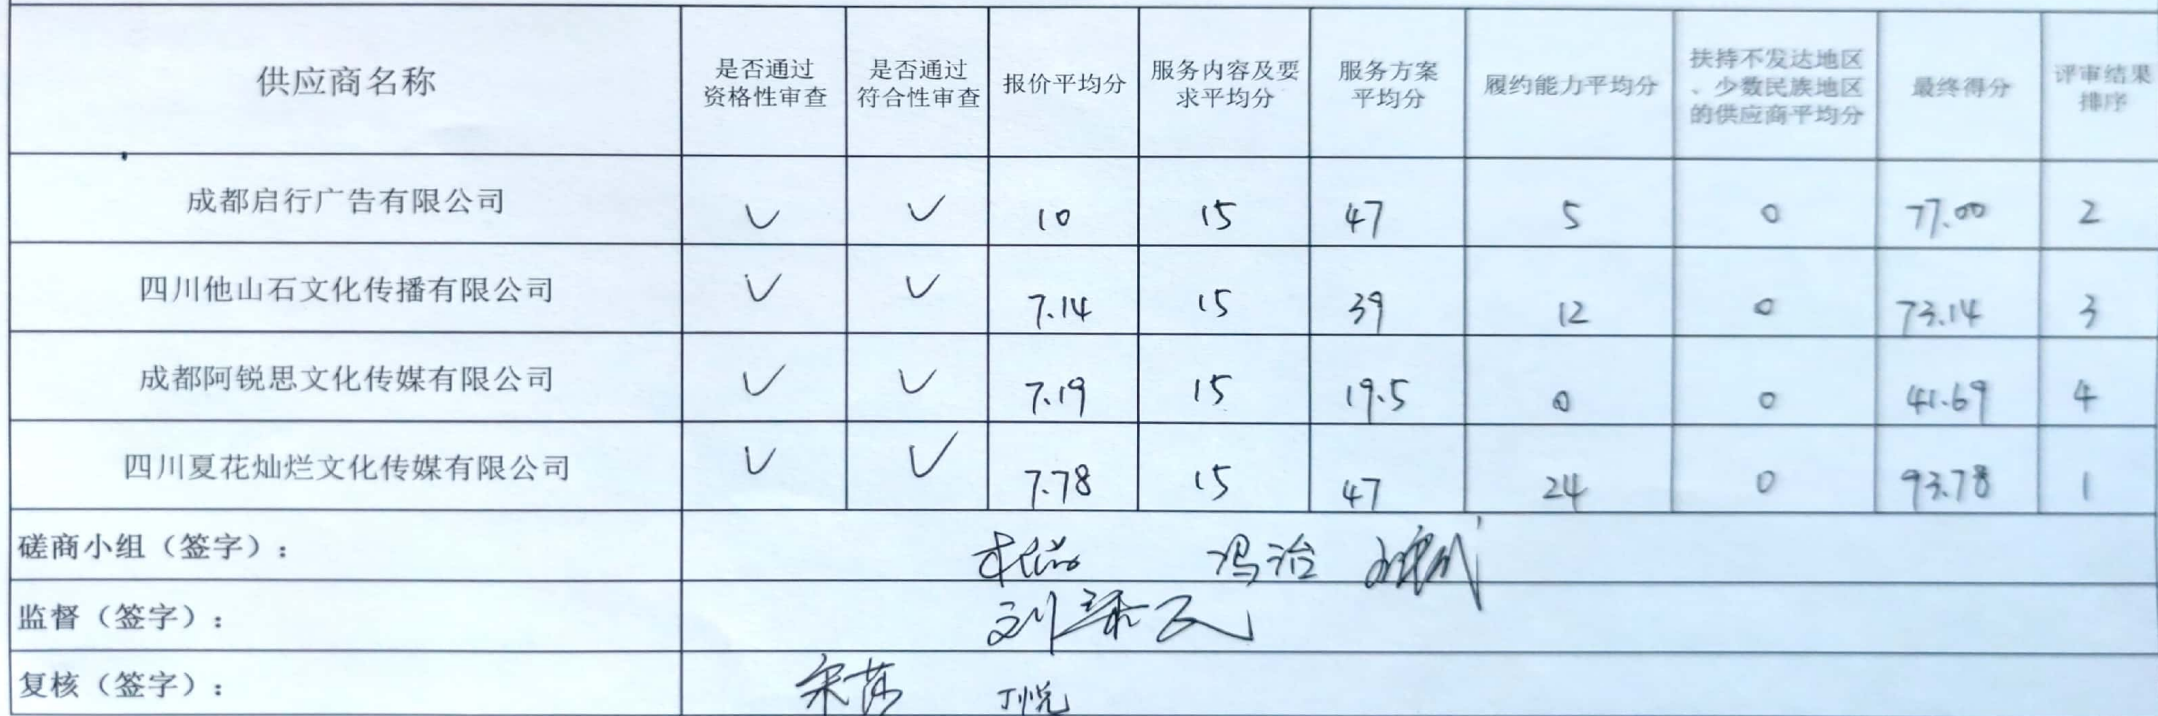 供应商名称 是否通过资格性审查 是否通过符合性审查 报价平均分 服务内容及要求平均分 服务方案平均分 履约能力平均分 扶持不发达地区、少数民族地区的供应商平均分 最终得分 评审结果排序
成都启行广告有限公司 ✓ ✓ 10 15 47 5 0 77.00 2
四川他山石文化传播有限公司 ✓ ✓ 7.14 15 39 12 0 73.14 3
成都阿锐思文化传媒有限公司 ✓ ✓ 7.19 15 19.5 0 0 41.69 4
四川夏花灿烂文化传媒有限公司 ✓ ✓ 7.78 15 47 24 0 93.78 1
磋商小组（签字）： 冯治
监督（签字）：
复核（签字）： 宋莎 丁悦